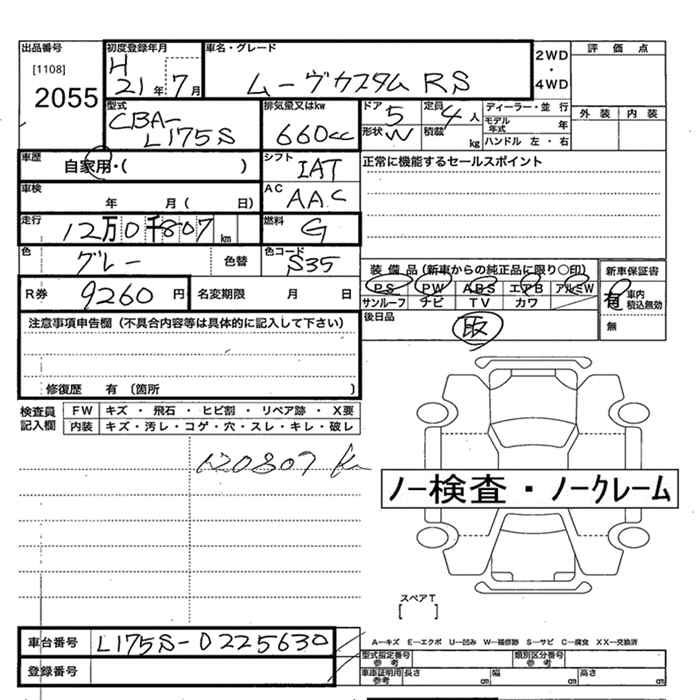 出品番号 初度登録年月 車名・グレード 2WD・4WD 評価点
[1108] H
2055 21年7月 ムーヴカスタム RS
型式 排気量又はkw ドア 定員 ディーラー・並行 外装 内装
CBA-L175S 660cc 5 4人 モデル年式 年
形状 W 積載 kg ハンドル 左・右
車歴 シフト 正常に機能するセールスポイント
自家用・( ) IAT
車検 AC
年 月( 日) AAC
走行 燃料
12万0千807km G
色 色コード 装備品(新車からの純正品に限り○印) 新車保証書
グレー 色替 S35 PS PW ABS エアB アルミW 有 車内積込無効
R券 9260円 名変期限 月 日 サンルーフ ナビ TV カワ 無
注意事項申告欄(不具合内容等は具体的に記入して下さい) 後日品
取
修復歴 有 〔箇所 〕
検査員記入欄 FW キズ・飛石・ヒビ割・リペア跡・X要
内装 キズ・汚レ・コゲ・穴・スレ・キレ・破レ
120807 km
ノー検査・ノークレーム
スペアT
[ ]
車台番号 L175S-0225630 A―キズ E―エクボ U―凹み W―補修跡 S―サビ C―腐食 XX―交換済
登録番号 型式指定番号 参考 類別区分番号 参考
車庫証明用参考 長さ cm 幅 cm 高さ cm